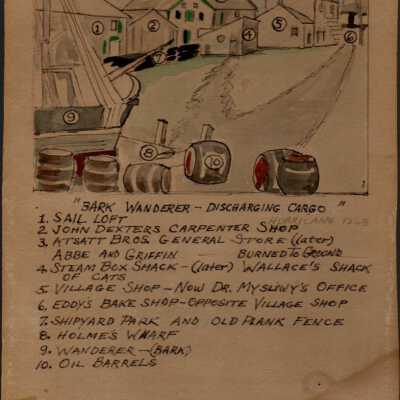 1
2
5
4
6
7
9
8
10
"BARK WANDERER – DISCHARGING CARGO"
1. SAIL LOFT HURRICANE
2 JOHN DEXTERS CARPENTER SHOP
3. ATSATT BROS. GENERAL STORE (later)
ABBE AND GRIFFIN — BURNED TO GROUND
4 STEAM BOX SHACK – (later) WALLACE'S SHACK
OF CATS
5 VILLAGE SHOP – NOW DR. MYSLIWY'S OFFICE
6, EDDY'S BAKE SHOP – OPPOSITE VILLAGE SHOP
7. SHIPYARD PARK AND OLD PLANK FENCE
8. HOLMES WHARF
9. WANDERER – (BARK)
10. OIL BARRELS